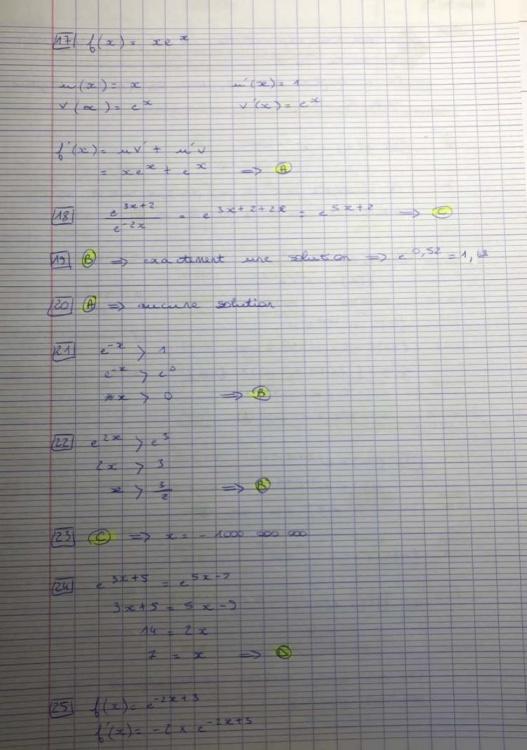 17 f(x) = xe^x
u(x) = x u'(x) = 1
v(x) = e^x v'(x) = e^x
f'(x) = uv' + u'v
= xe^x + e^x ⟹ A
18 e^(3x+2) / e^(-2x) = e^(3x+2+2x) = e^(5x+2) ⟹ C
19 B ⟹ exactement une solution ⟹ e^0,52 = 1,68
20 A ⟹ aucune solution
21 e^-x > 1
e^-x > e^0
-x > 0 ⟹ B
22 e^2x > e^3
2x > 3
x > 3/2 ⟹ B
23 C ⟹ x = -1000 000 000
24 e^(3x+5) = e^(5x-9)
3x+5 = 5x-9
14 = 2x
7 = x ⟹
25 f(x) = e^(-2x+3)
f'(x) = -2 x e^(-2x+3)